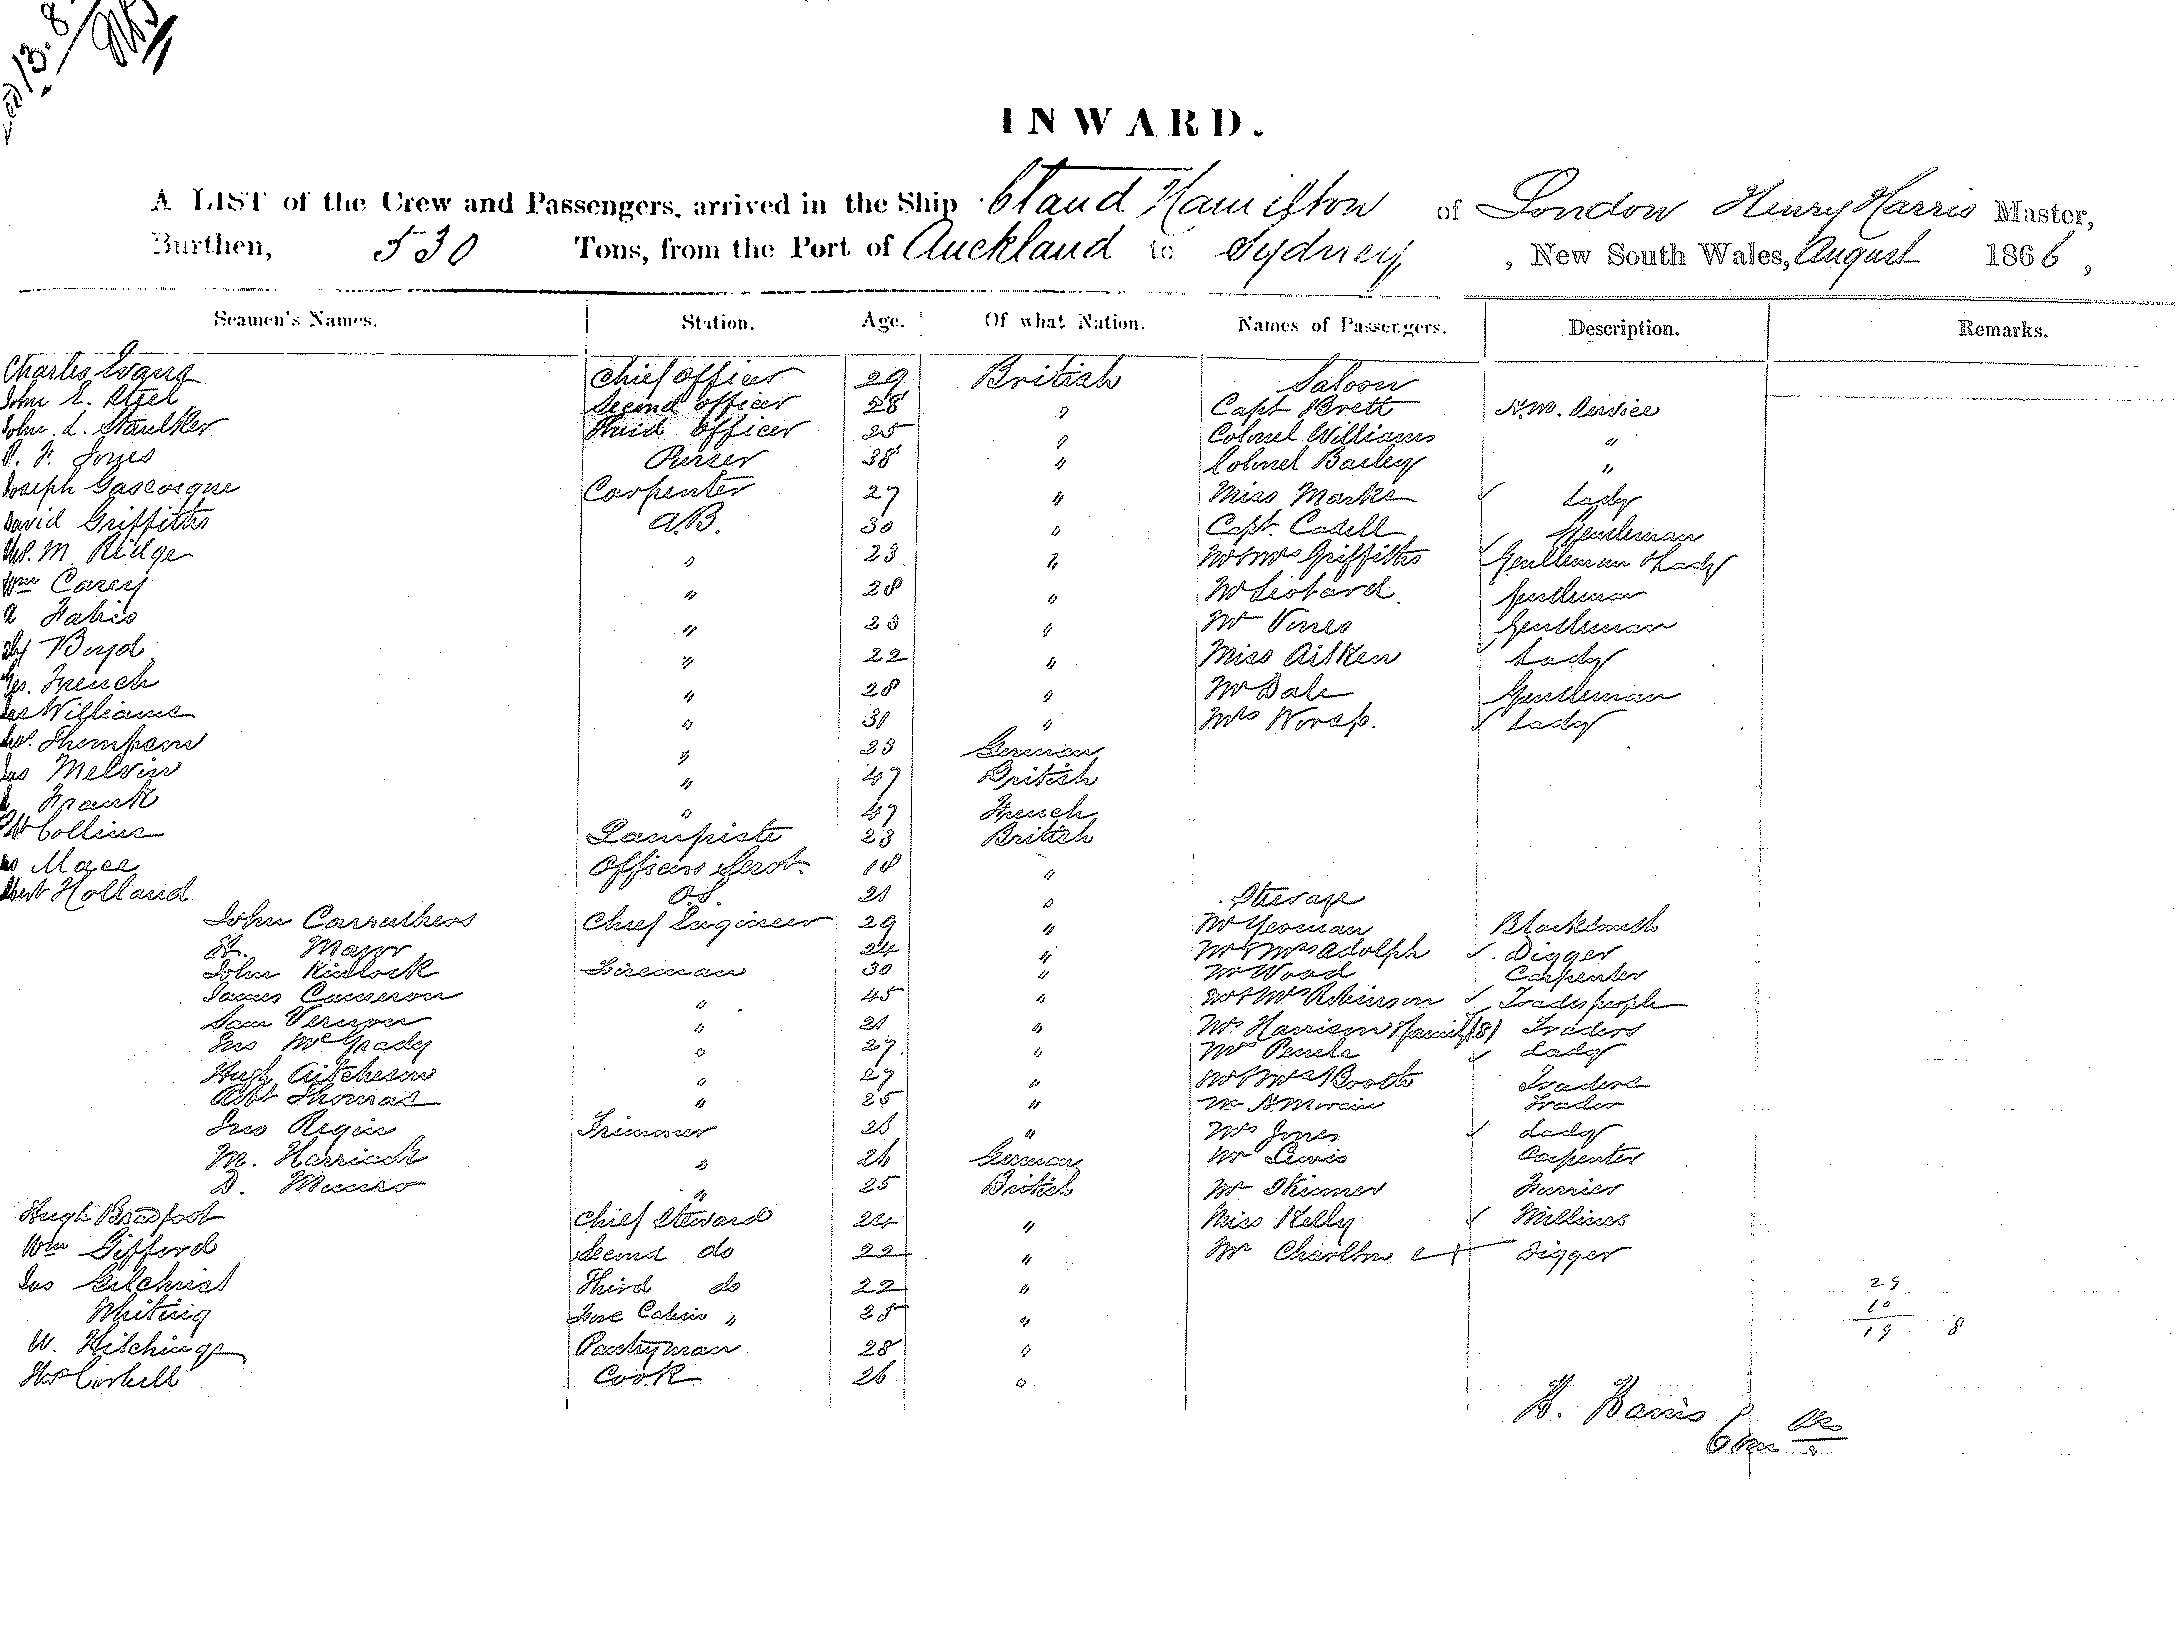 13.8
INWARD.
A LIST of the Crew and Passengers, arrived in the Ship Claud Hamilton of London Henry Harris Master,
Burthen, 530 Tons, from the Port of Auckland to Sydney, New South Wales, August 1866,
Seamen's Names. Station. Age. Of what Nation. Names of Passengers. Description. Remarks.
Charles Evans Chief Officer 29 British Saloon
John Second Officer 28 " Capt Brett H.M. Service
John L. Staulker Third Officer 25 " Colonel Williams "
Jones Purser 38 " Colonel Bailey "
Joseph Gascoigne Carpenter 27 " Miss Marks ✓ Lady
David Griffiths A.B. 30 " Capt. Cadell Gentleman
M. Ridge " 23 " Mr & Mrs Griffiths ✓ Gentleman & Lady
Wm Carey " 28 " Mr Gentleman
" 23 " Mr Vines Gentleman
Boyd " 22 " Miss Aitken ✓ Lady
French " 28 " Mr Dale Gentleman
Williams " 30 " Mrs Worsp. ✓ Lady
Thompson " 23 German
Jas Melvin " 47 British
Frank " 47 French
Collins 23 British
Mace Officers Servt. 18 "
Holland O.S. 21 " Steerage
John Carruthers Chief Engineer 29 " Mr Yeoman Blacksmith
Manor 24 " Mr & Mrs Adolph ✓ Digger
John Kinlock Fireman 30 " Mr Wood Carpenter
James Cameron " 45 " Mr & Mrs Robinson ✓ Tradespeople
Sam Vernon " 21 " Mrs Harrison & Family (8) Traders
Jno McGrady " 27 " Mrs ✓ Lady
Hugh Aitcheson " 27 " Mr & Mrs Booth Traders
Robt Thomas " 25 " Mr Trader
Jno Regin Trimmer 21 " Mrs Jones ✓ Lady
M. " 26 German Mr Lewis Carpenter
D. Munro " 25 British Mr Skinner Furrier
Hugh Bradfoot Chief Steward 24 " Miss Kelly ✓ Milliner
Wm Gifford Second do 22 " Mr Charlton Digger
Jas Gilchrist Third do 22 " 29
Whiting Fore Cabin " 25 " 10
W. Hitchings Pantryman 28 " 19 8
Corbell Cook 26 "
H. Harris